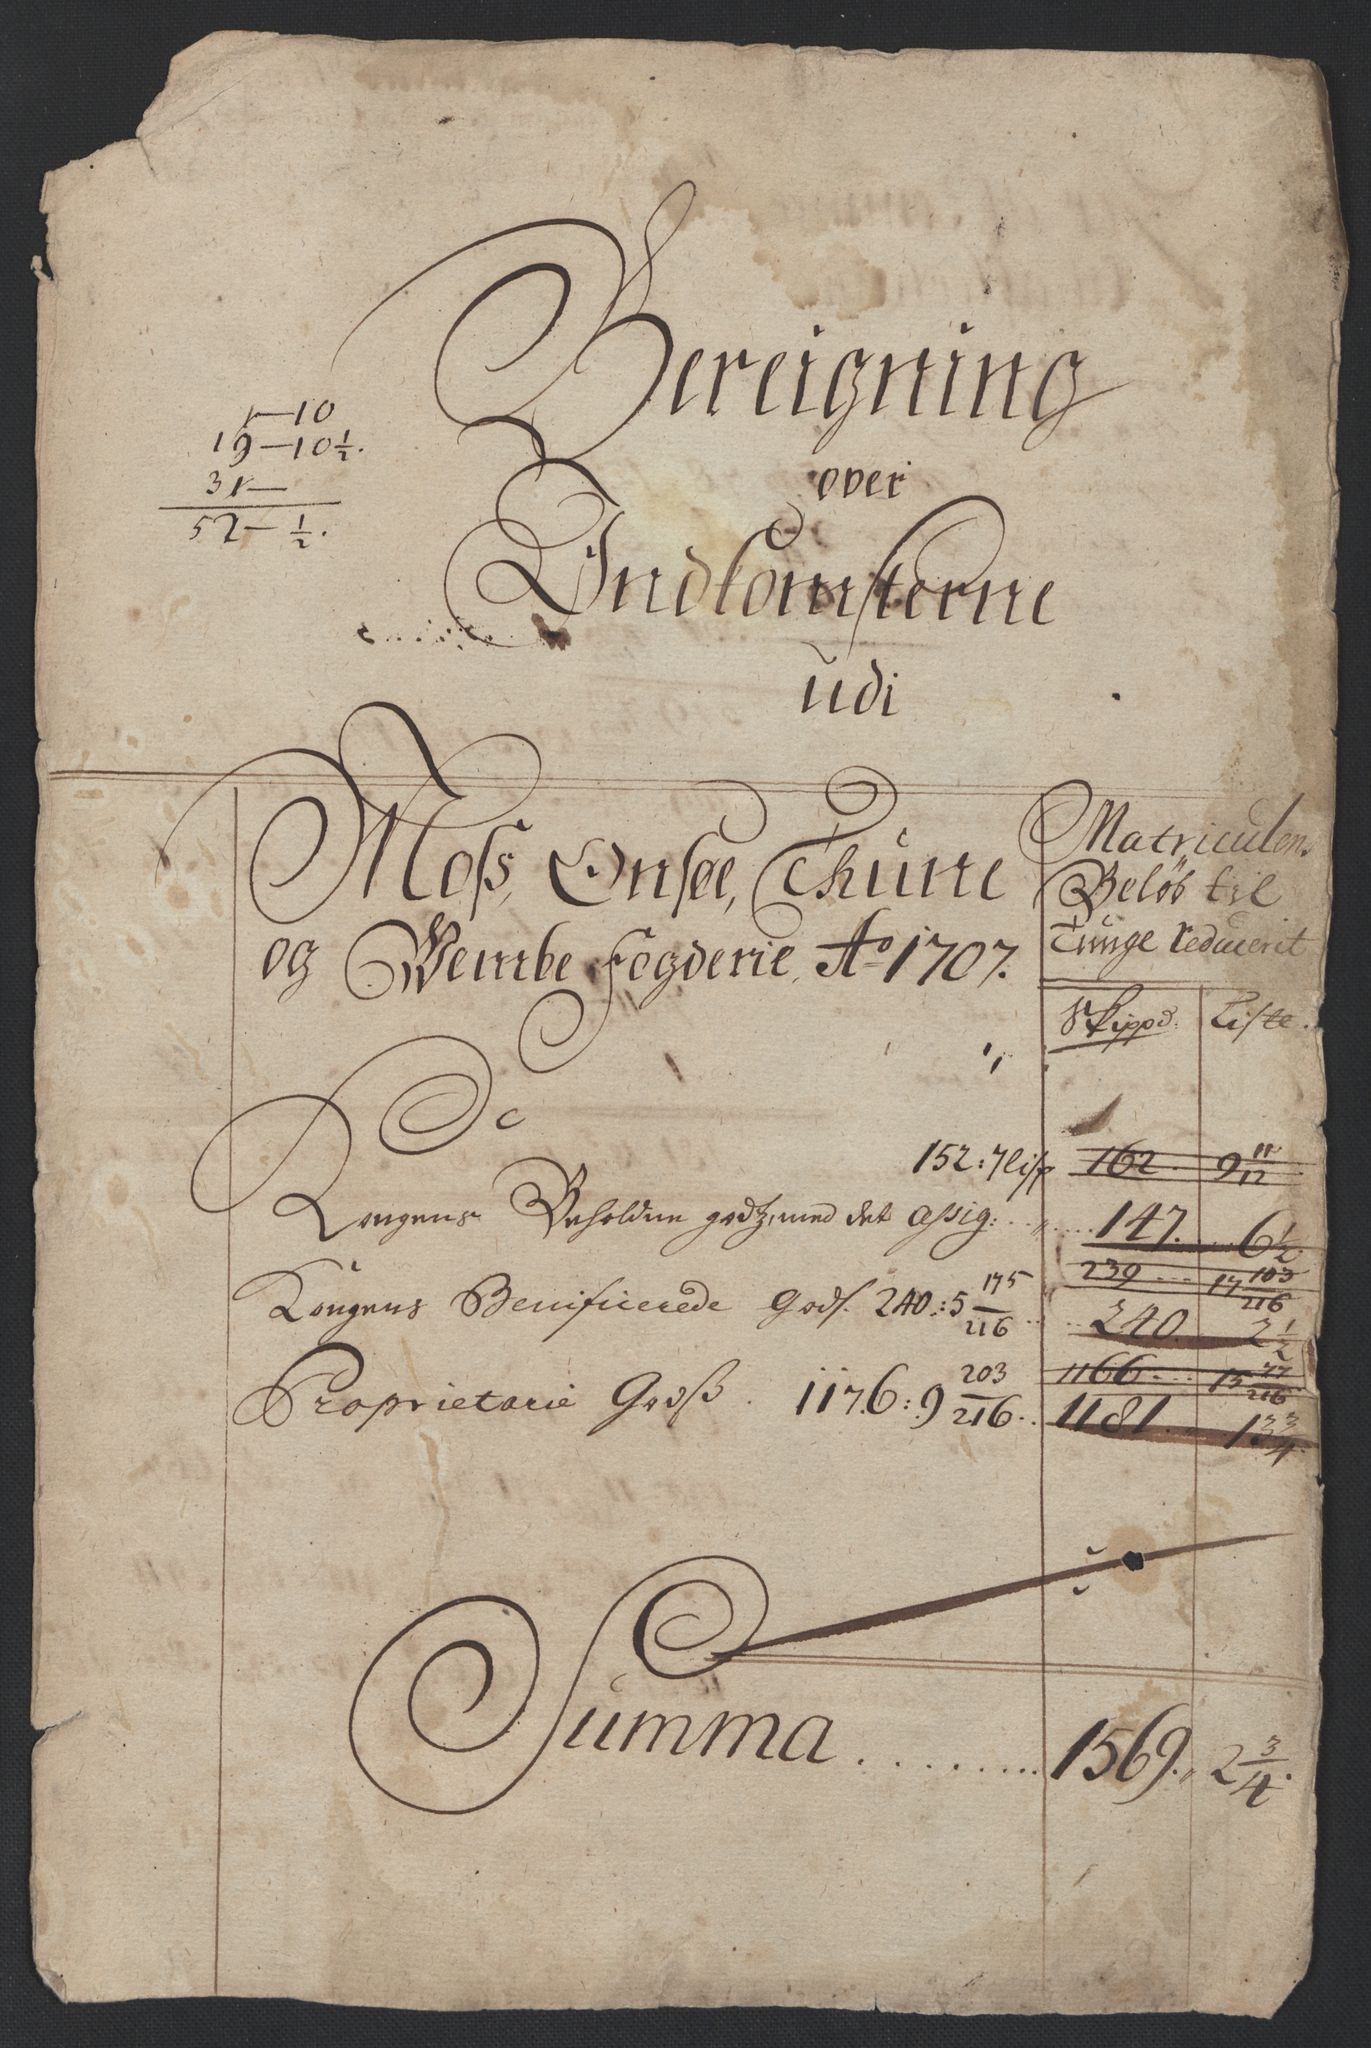 Bereigning
1–10
19–10½.
31–
52–½.
over
Indkomsterne
udi
Moss, Onsøe, Thune
og Wembe Fogderie, Ao 1707.
Matriculen
Beløb til
Tunge reducerit
Skippd. Liste.
152: 7 lisp 162. 9 11/12
Kongens Beholdne godz, med det assig: 147. 6½
239 17 103/216
Kongens Benificerede Gods. 240: 5 175/216 240. 2½
1166 15 77/216
Proprietarie Godß. 1176: 9 203/216 1181. 13¾
Summa 1569. 2¾.